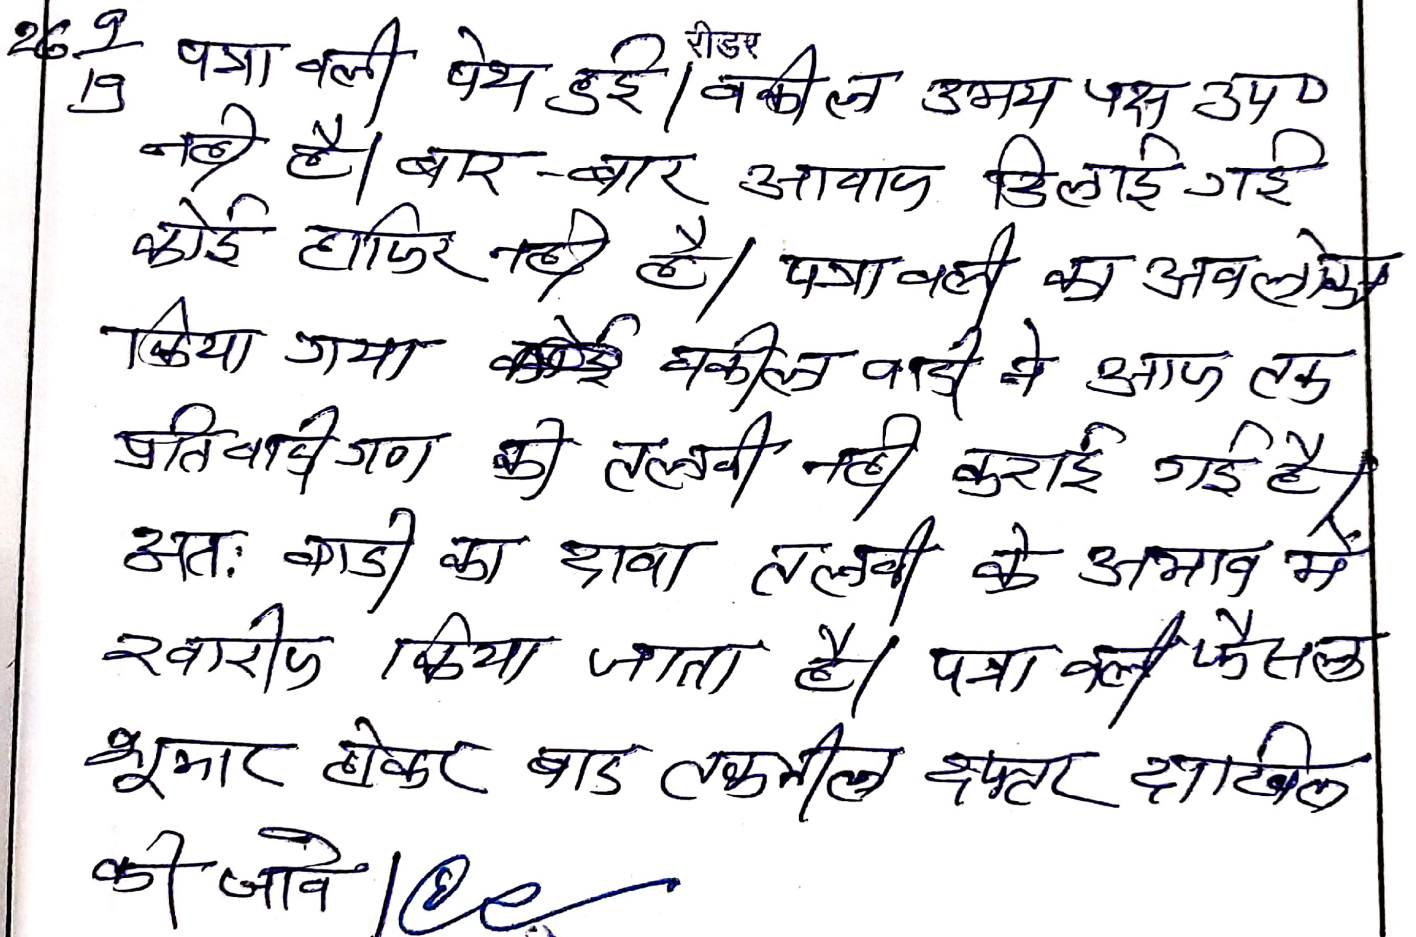 26 9/19 पत्रावली पेश हुई। रीडर वकील उभय पक्ष उप०
नही है। बार-बार आवाज दिलाई गई
कोई हाजिर नही है। पत्रावली का अवलोकन
किया गया वकील वादी ने आज तक
प्रतिवादीगण की तलबी नही कराई गई है।
अत: वादी का दावा तलबी के अभाव में
खारीज किया जाता है। पत्रावली फैसल
शूमार होकर बाद तकमील दफ्तर दाखिल
की जावे।